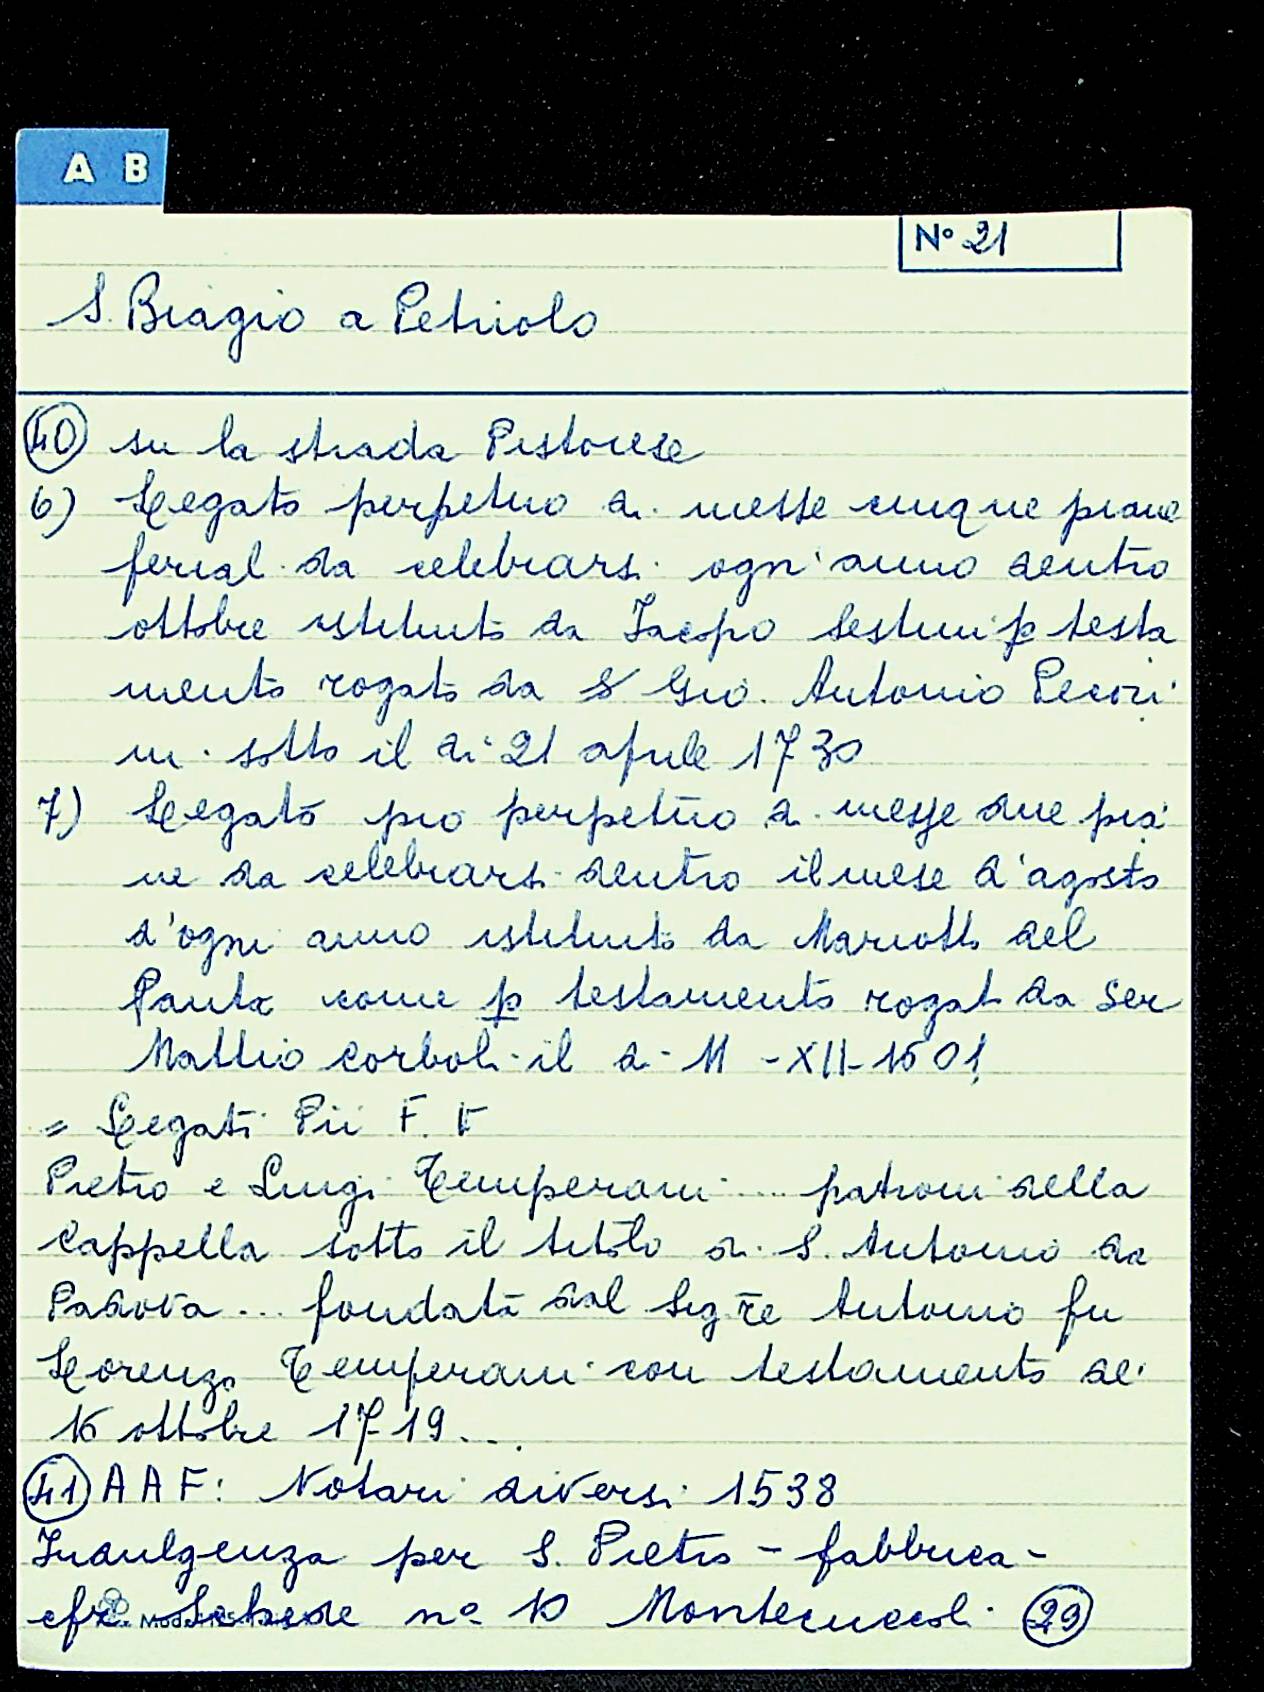 A B
N° 21
S. Biagio a Petriolo
40 su la strada Pistoiese
6) Legato perpetuo di messe cinque piane
feriali da celebrarsi ogni anno dentro
ottobre istituito da Jacopo Sestini p testa
mento rogato da S Gio. Antonio Pecori
ni sotto il di 21 aprile 1730
7) Legato pio perpetuo di messe due pia
ne da celebrarsi dentro il mese d'agosto
d'ogni anno istituito da Mariotto del
Panta come p testamento rogato da Ser
Mattio Corboli il di 11 - XII - 1601
= Legati Pii F. F
Pietro e Luigi Temperani ... patroni della
Cappella sotto il titolo di S. Antonio da
Padova ... fondata dal Sig re Antonio fu
Lorenzo Temperani con testamento de'
16 ottobre 1719 ...
41 AAF: Notari diversi 1538
Indulgenza per S. Pietro - fabbrica -
cfr Schede n° 10 Montecuccoli 29